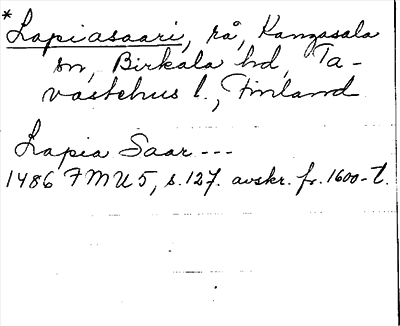 *Lapiasaari, rå, Kangasala
sn, Birkala hd, Ta-
vastehus l., Finland
Lapia Saar ---
1486 FMU 5, s. 127. avskr. fr. 1600-t.